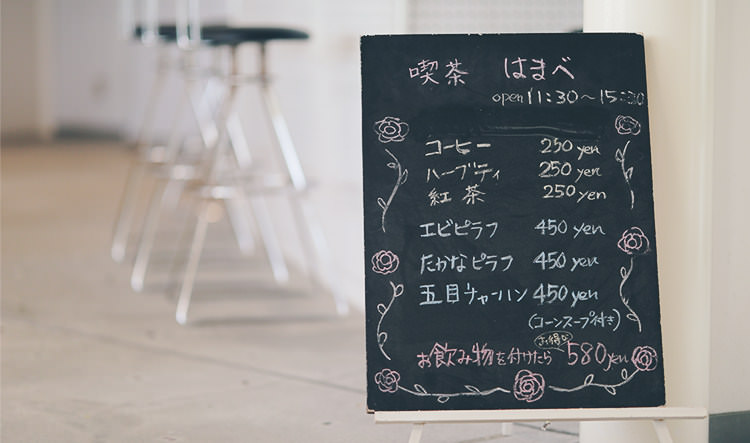 喫茶 はまべ
open 11:30～15:30
コーヒー 250yen
ハーブティ 250yen
紅茶 250yen
エビピラフ 450yen
たかなピラフ 450yen
五目チャーハン 450yen
(コーンスープ付き)
お得な
お飲み物を付けたら 580yen